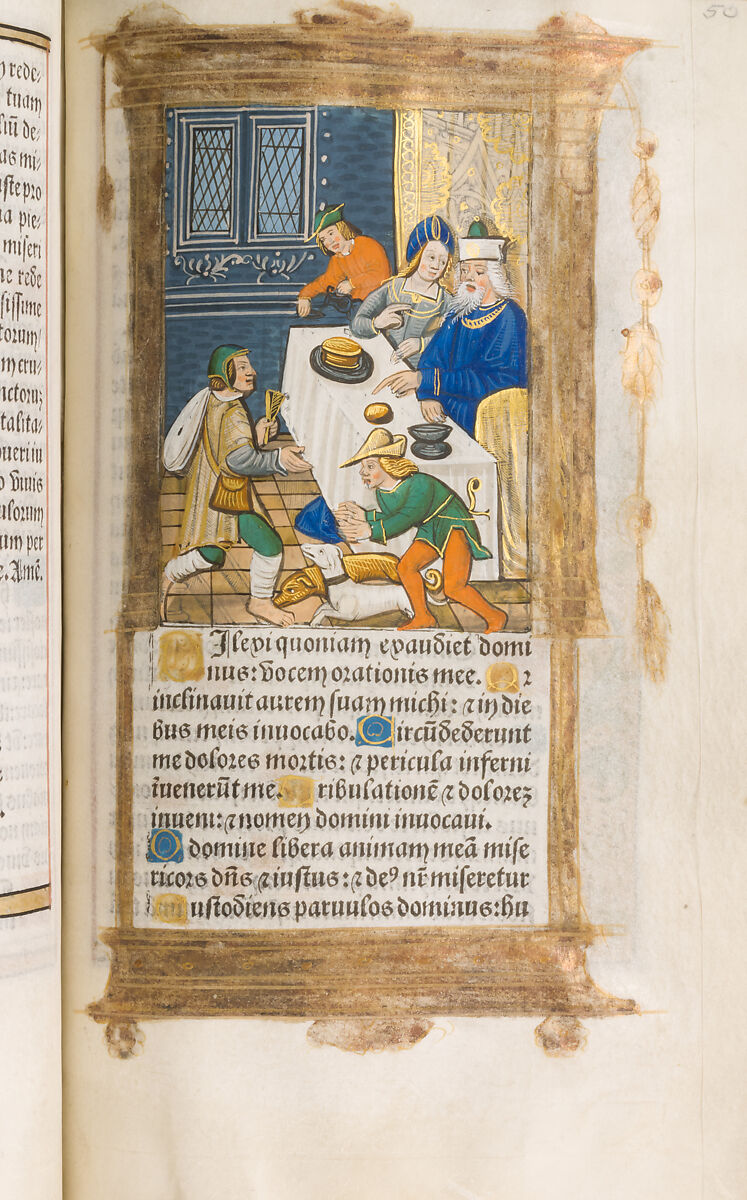 rede-
tuam
liū de-
as mi-
iste pro
a pie-
miseri
ne rede
sissime
torum/
m eru-
nctorum
talita-
uerim
o vnis
ulorum
um per
e. Amē.
50
Dilexi quoniam exaudiet domi
nus: vocem orationis mee. Qꝛ
inclinauit aurem suam michi: ⁊ in die
bus meis inuocabo. Circūdederunt
me dolores mortis: ⁊ pericula inferni
īuenerūt me. Tribulationē ⁊ dolorez
inueni: ⁊ nomen domini inuocaui.
O domine libera animam meā mise
ricors dn̄s ⁊ iustus: ⁊ deꝰ nr̄ miseretur
Custodiens paruulos dominus: hu